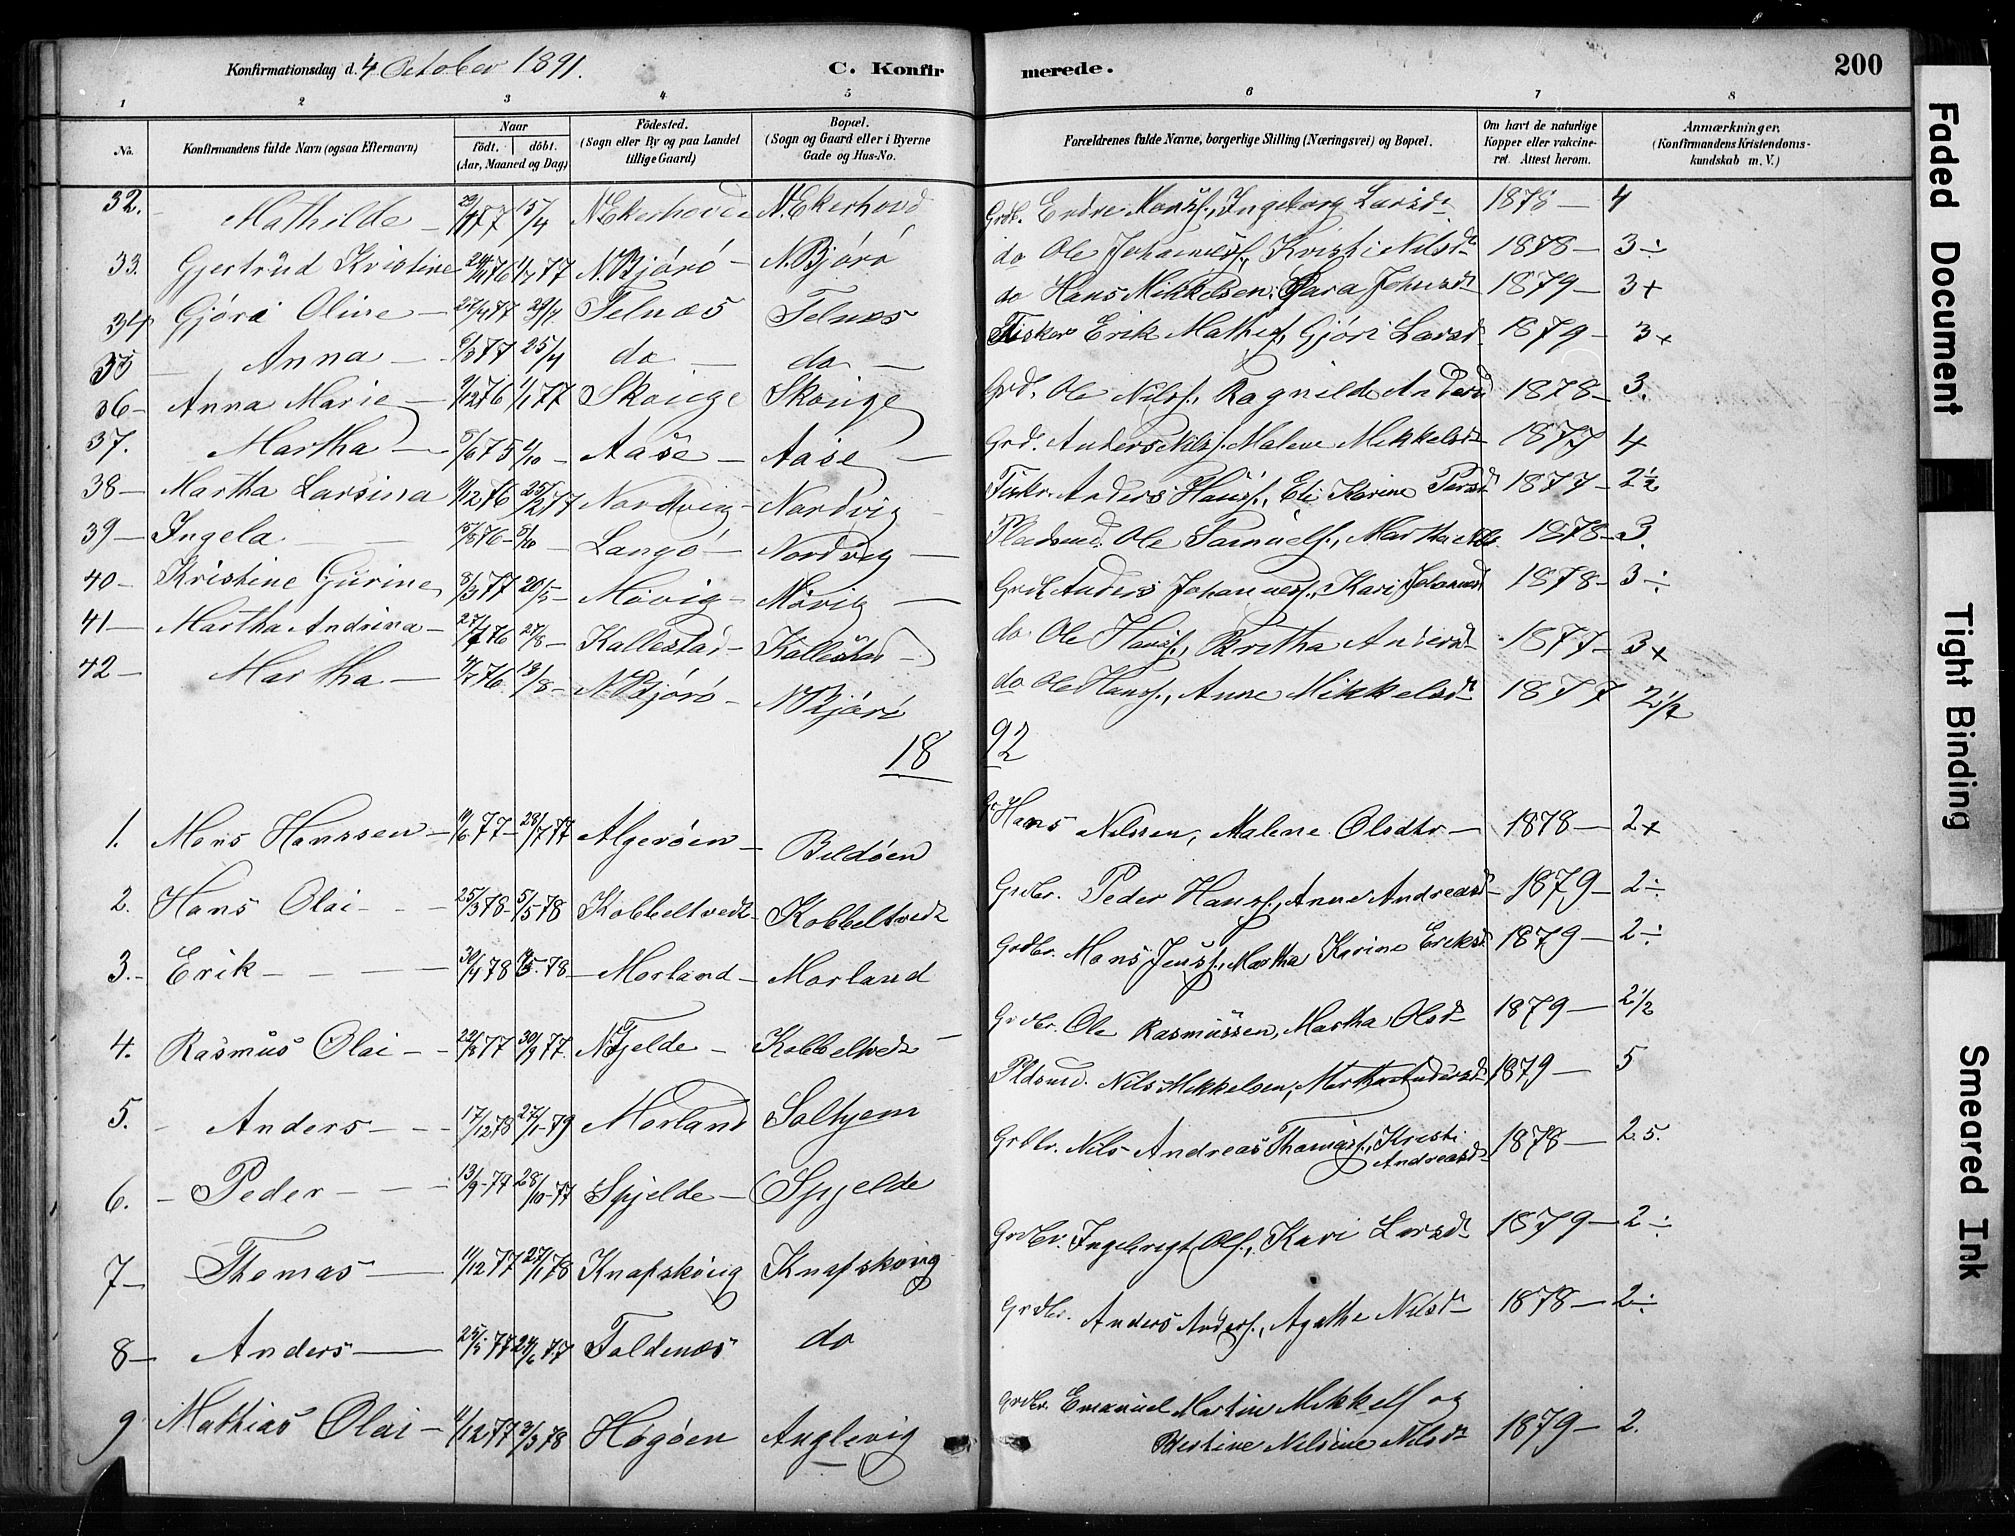 Konfirmationsdag d. 4 October 1891. C. Konfirmerede. 200
1 2 3 4 5 6 7 8
No. Konfirmandens fulde Navn (ogsaa Efternavn) Naar födt. döbt. (Aar, Maaned og Dag) Födested. (Sogn eller By og paa Landet tillige Gaard) Bopæl. (Sogn og Gaard eller i Byerne Gade og Hus-No. Forældrenes fulde Navne, borgerlige Stilling (Næringsvei) og Bopæl. Om havt de naturlige Kopper eller vakcineret. Attest herom. Anmærkninger, (Konfirmandens Kristendomskundskab m. V.)
32. Mathilde 15/4 N. Ekerhovd N. Ekerhovd Grdb. Endre Monss., Ingeborg Larsdr 1878 4
33. Gjertrud Kristine 1/1 77 N. Bjórö N. Bjórö do Ole Johanness., Kristi Nilsdr 1878 3÷
34 Gjóri Oline 22/4 77 29/4 Telnæs Telnæs do Hans Mikkelsen, Sara Johnsdr 1879 3+
35 Anna 9/3 77 25/4 do do Fisker Erik Mathis., Gjóri Larsd 1879 3+
36 Anna Marie 9/12 76 1/1 77 Skoige Skoige Grdb. Ole Nilss., Ragnilde Andersd 1878 3.
37. Martha 5/6 75 4/10 Aase Aase Grdb. Anders Nilss. Malene Mikkelsdr 1877 4
38 Martha Larsina 9/12 76 25/2 77 Nordvig Nordvig Fiskr. Anders Hanss., Eli Karine Persdr 1877 2½
39 Ingela 15/8 76 8/10 Langö Nordvig Pladsmd. Ole Samuels., Martha Nils. 1878 3.
40 Kristine Gurine 8/3 77 20/5 Móvig Móvig Grdb. Anders Johanness., Kari Johannesd 1878 3÷
41 Martha Andrina 27/7 76 27/8 Kallestad Kallestad do Ole Hanss., Britha Andersd 1877 3+
42 Martha 4/7 76 13/8 N. Bjórö N. Bjórö do Ole Hanss., Anne Mikkelsdr 1877 2½
18 92
1. Mons Hanssen 10/6 77 28/7 77 Algeröen Bildöen Gr. Hans Nilssen, Malene Olsdtr 1878 2+
2. Hans Olai 25/3 78 5/5 78 Kobbeltvedt Kobbeltvedt Grdbr. Peder Hanss., Anne Andreasd 1879 2÷
3. Erik 30/4 78 Morland Morland Grdbr. Mons Jenss., Martha Karine Eriksd 1879 2÷
4. Rasmus Olai 29/8 77 30/9 77 N. Fjelde Kobbeltvedt Grdbr. Ole Rasmussen, Martha Olsdr 1879 2½
5. Anders 17/12 78 27/1 79 Morland Solhjem Pldsmd. Nils Mikkelsen, Martha Andersdr 1879 5
6. Peder 13/9 77 28/10 77 Spjelde Spjelde Grdbr. Nils Andreas Thomass., Kristi Andreasdr 1878 2.5.
7 Thomas 11/12 77 27/1 78 Knapskoug Knapskoug Grdbr. Ingebrigt Ols., Kari Larsdr 1879 2÷
8 Anders 25/5 77 24/6 77 Foldenæs do Grdbr. Anders Anders., Agathe Nilsdr 1878 2÷
9 Mathias Olai 11/12 77 3/3 78 Högöen Anglevig Grdbr. Emanuel Martin Mikkels og
Bertine Nilsine Nilsdr 1879 2.
Faded Document
Tight Binding
Smeared Ink